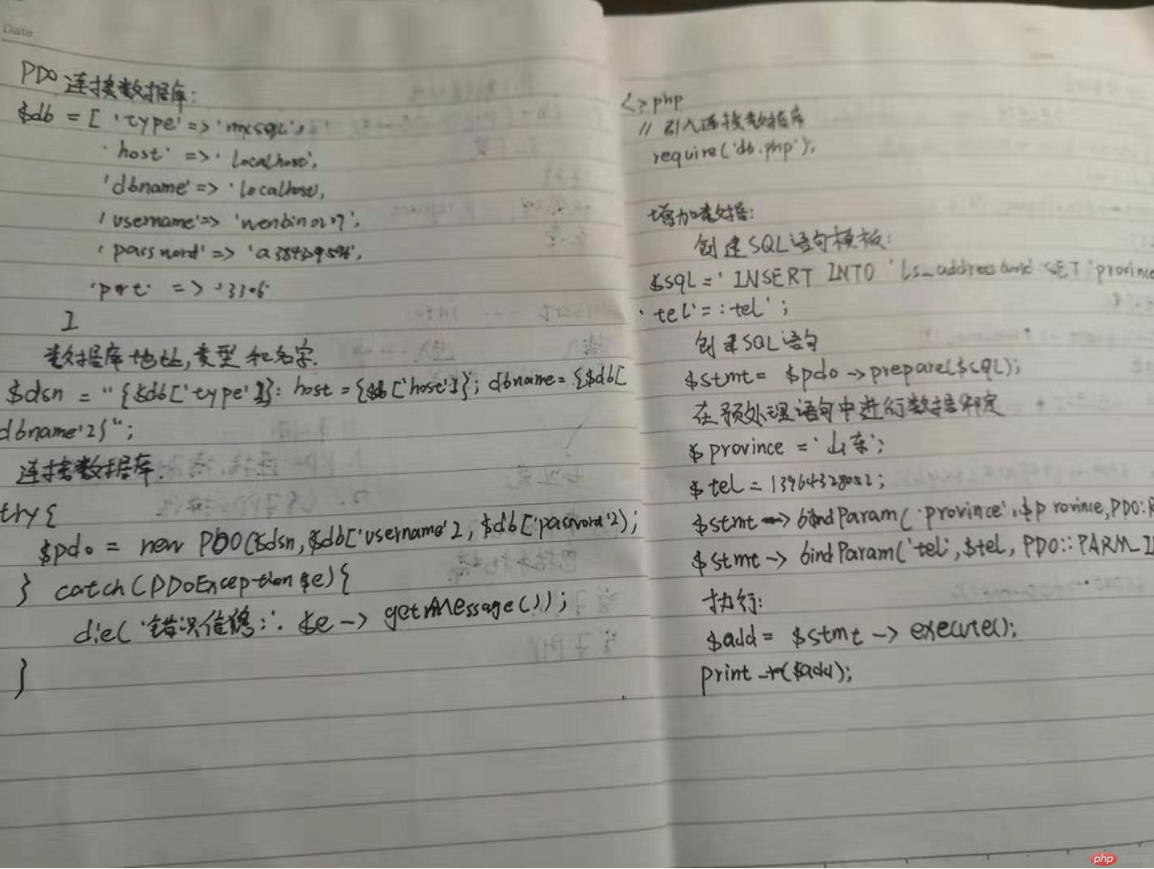 Date
PDO 连接数据库:
$db = [ 'type' => 'mysql',
'host' => 'localhost',
'dbname' => 'localhost',
'username' => 'wenbin0207',
'password' => 
'port' => '3306
]
数据库地址,类型和名字.
$dsn = "{$db['type']}: host = {$db['host']}; dbname = {$db[
dbname']}";
连接数据库.
try{
$pdo = new PDO($dsn, $db['username'], $db['password']);
} catch(PDOException $e){
die( '错误信息:'. $e -> getMessage());
}
<?php
// 引入连接数据库
require('db.php');
增加数据:
创建SQL语句模板:
$sql = ' INSERT INTO SET `province
`tel`=:tel' ;
创建SQL语句
$stmt = $pdo -> prepare($sql);
在预处理语句中进行数据绑定
$province = '山东';
$tel = 13964328082;
$stmt -> bindParam( 'province', $province, PDO::
$stmt -> bindParam('tel', $tel, PDO::PARM_I
执行:
$add = $stmt -> execute();
print_r($add);
php